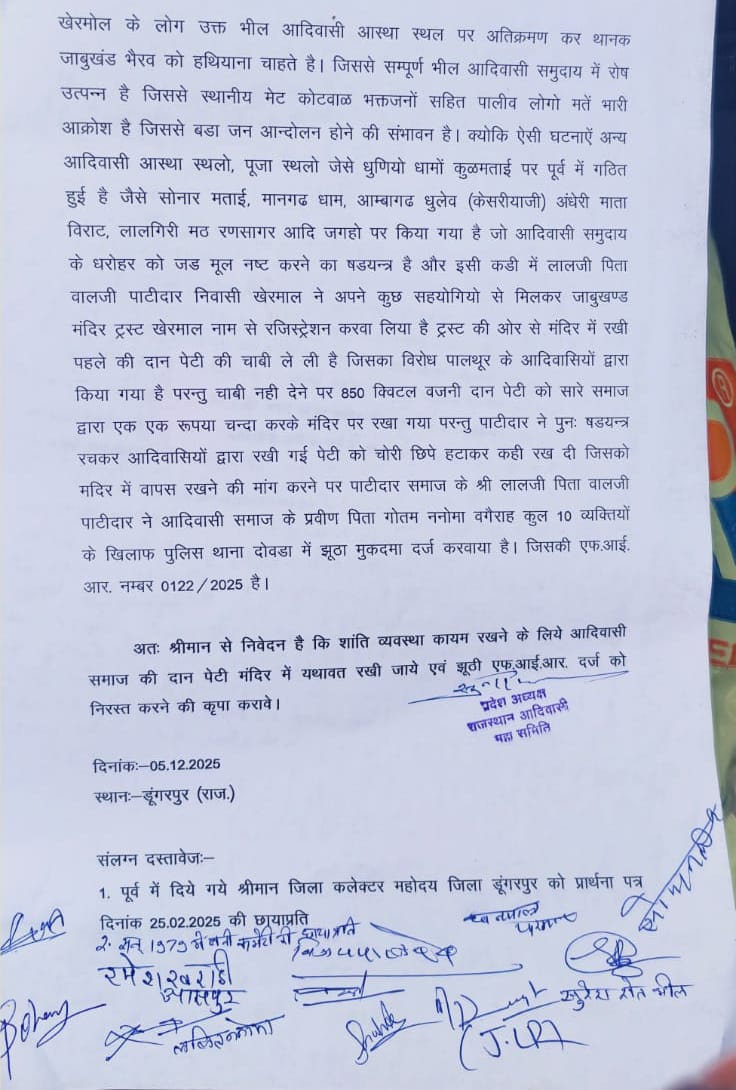 खेरमोल के लोग उक्त भील आदिवासी आस्था स्थल पर अतिक्रमण कर थानक
जाबुखंड भैरव को हथियाना चाहते है। जिससे सम्पूर्ण भील आदिवासी समुदाय में रोष
उत्पन्न है जिससे स्थानीय मेट कोटवाळ भक्तजनों सहित पालीव लोगो मतें भारी
आक्रोश है जिससे बडा जन आन्दोलन होने की संभावन है। क्योकि ऐसी घटनाऐं अन्य
आदिवासी आस्था स्थलो, पूजा स्थलो जेसे धुणियो धामों कुळमताई पर पूर्व में गठित
हुई है जैसे सोनार मताई, मानगढ धाम, आम्बागढ धुलेव (केसरीयाजी) अंधेरी माता
विराट, लालगिरी मठ रणसागर आदि जगहो पर किया गया है जो आदिवासी समुदाय
के धरोहर को जड मूल नष्ट करने का षडयन्त्र है और इसी कडी में लालजी पिता
वालजी पाटीदार निवासी खेरमाल ने अपने कुछ सहयोगियो से मिलकर जाबुखण्ड
मंदिर ट्रस्ट खेरमाल नाम से रजिस्ट्रेशन करवा लिया है ट्रस्ट की ओर से मंदिर में रखी
पहले की दान पेटी की चाबी ले ली है जिसका विरोध पालथूर के आदिवासियों द्वारा
किया गया है परन्तु चाबी नही देने पर 850 क्विटल वजनी दान पेटी को सारे समाज
द्वारा एक एक रूपया चन्दा करके मंदिर पर रखा गया परन्तु पाटीदार ने पुनः षडयन्त्र
रचकर आदिवासियों द्वारा रखी गई पेटी को चोरी छिपे हटाकर कही रख दी जिसको
मदिर में वापस रखने की मांग करने पर पाटीदार समाज के श्री लालजी पिता वालजी
पाटीदार ने आदिवासी समाज के प्रवीण पिता गोतम ननोमा वगैराह कुल 10 व्यक्तियों
के खिलाफ पुलिस थाना दोवडा में झूठा मुकदमा दर्ज करवाया है। जिसकी एफ.आई.
आर. नम्बर 0122/2025 है।
अतः श्रीमान से निवेदन है कि शांति व्यवस्था कायम रखने के लिये आदिवासी
समाज की दान पेटी मंदिर में यथावत रखी जाये एवं झूठी एफ.आई.आर. दर्ज को
निरस्त करने की कृपा करावे।
प्रदेश अध्यक्ष
राजस्थान आदिवासी
महा समिति
दिनांकः–05.12.2025
स्थानः–डूंगरपुर (राज.)
संलग्न दस्तावेजः–
1. पूर्व में दिये गये श्रीमान जिला कलेक्टर महोदय जिला डूंगरपुर को प्रार्थना पत्र
दिनांक 25.02.2025 की छायाप्रति
2. सन् 1979 में बनी कमेटी की छायाप्रति
रमेश खराडी
आसपुर